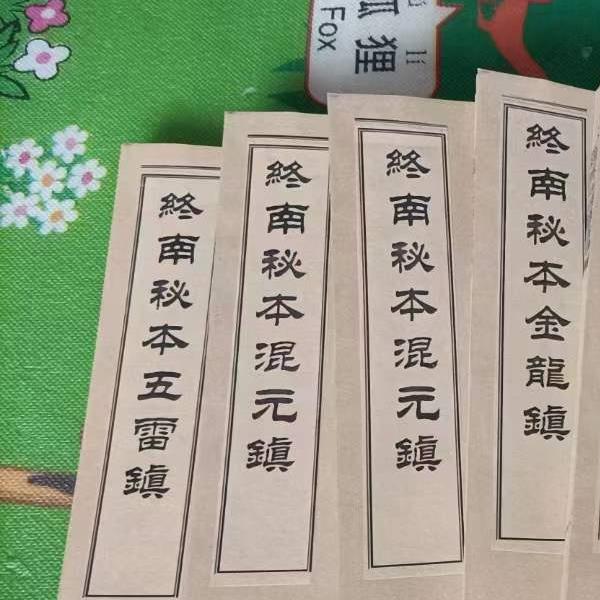 狐狸
li
Fox
終南秘本五雷鎮
終南秘本混元鎮
終南秘本混元鎮
終南秘本金龍鎮